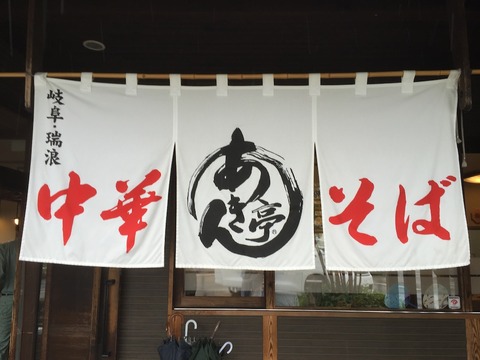 岐阜・瑞浪
中華
あきん亭
そば